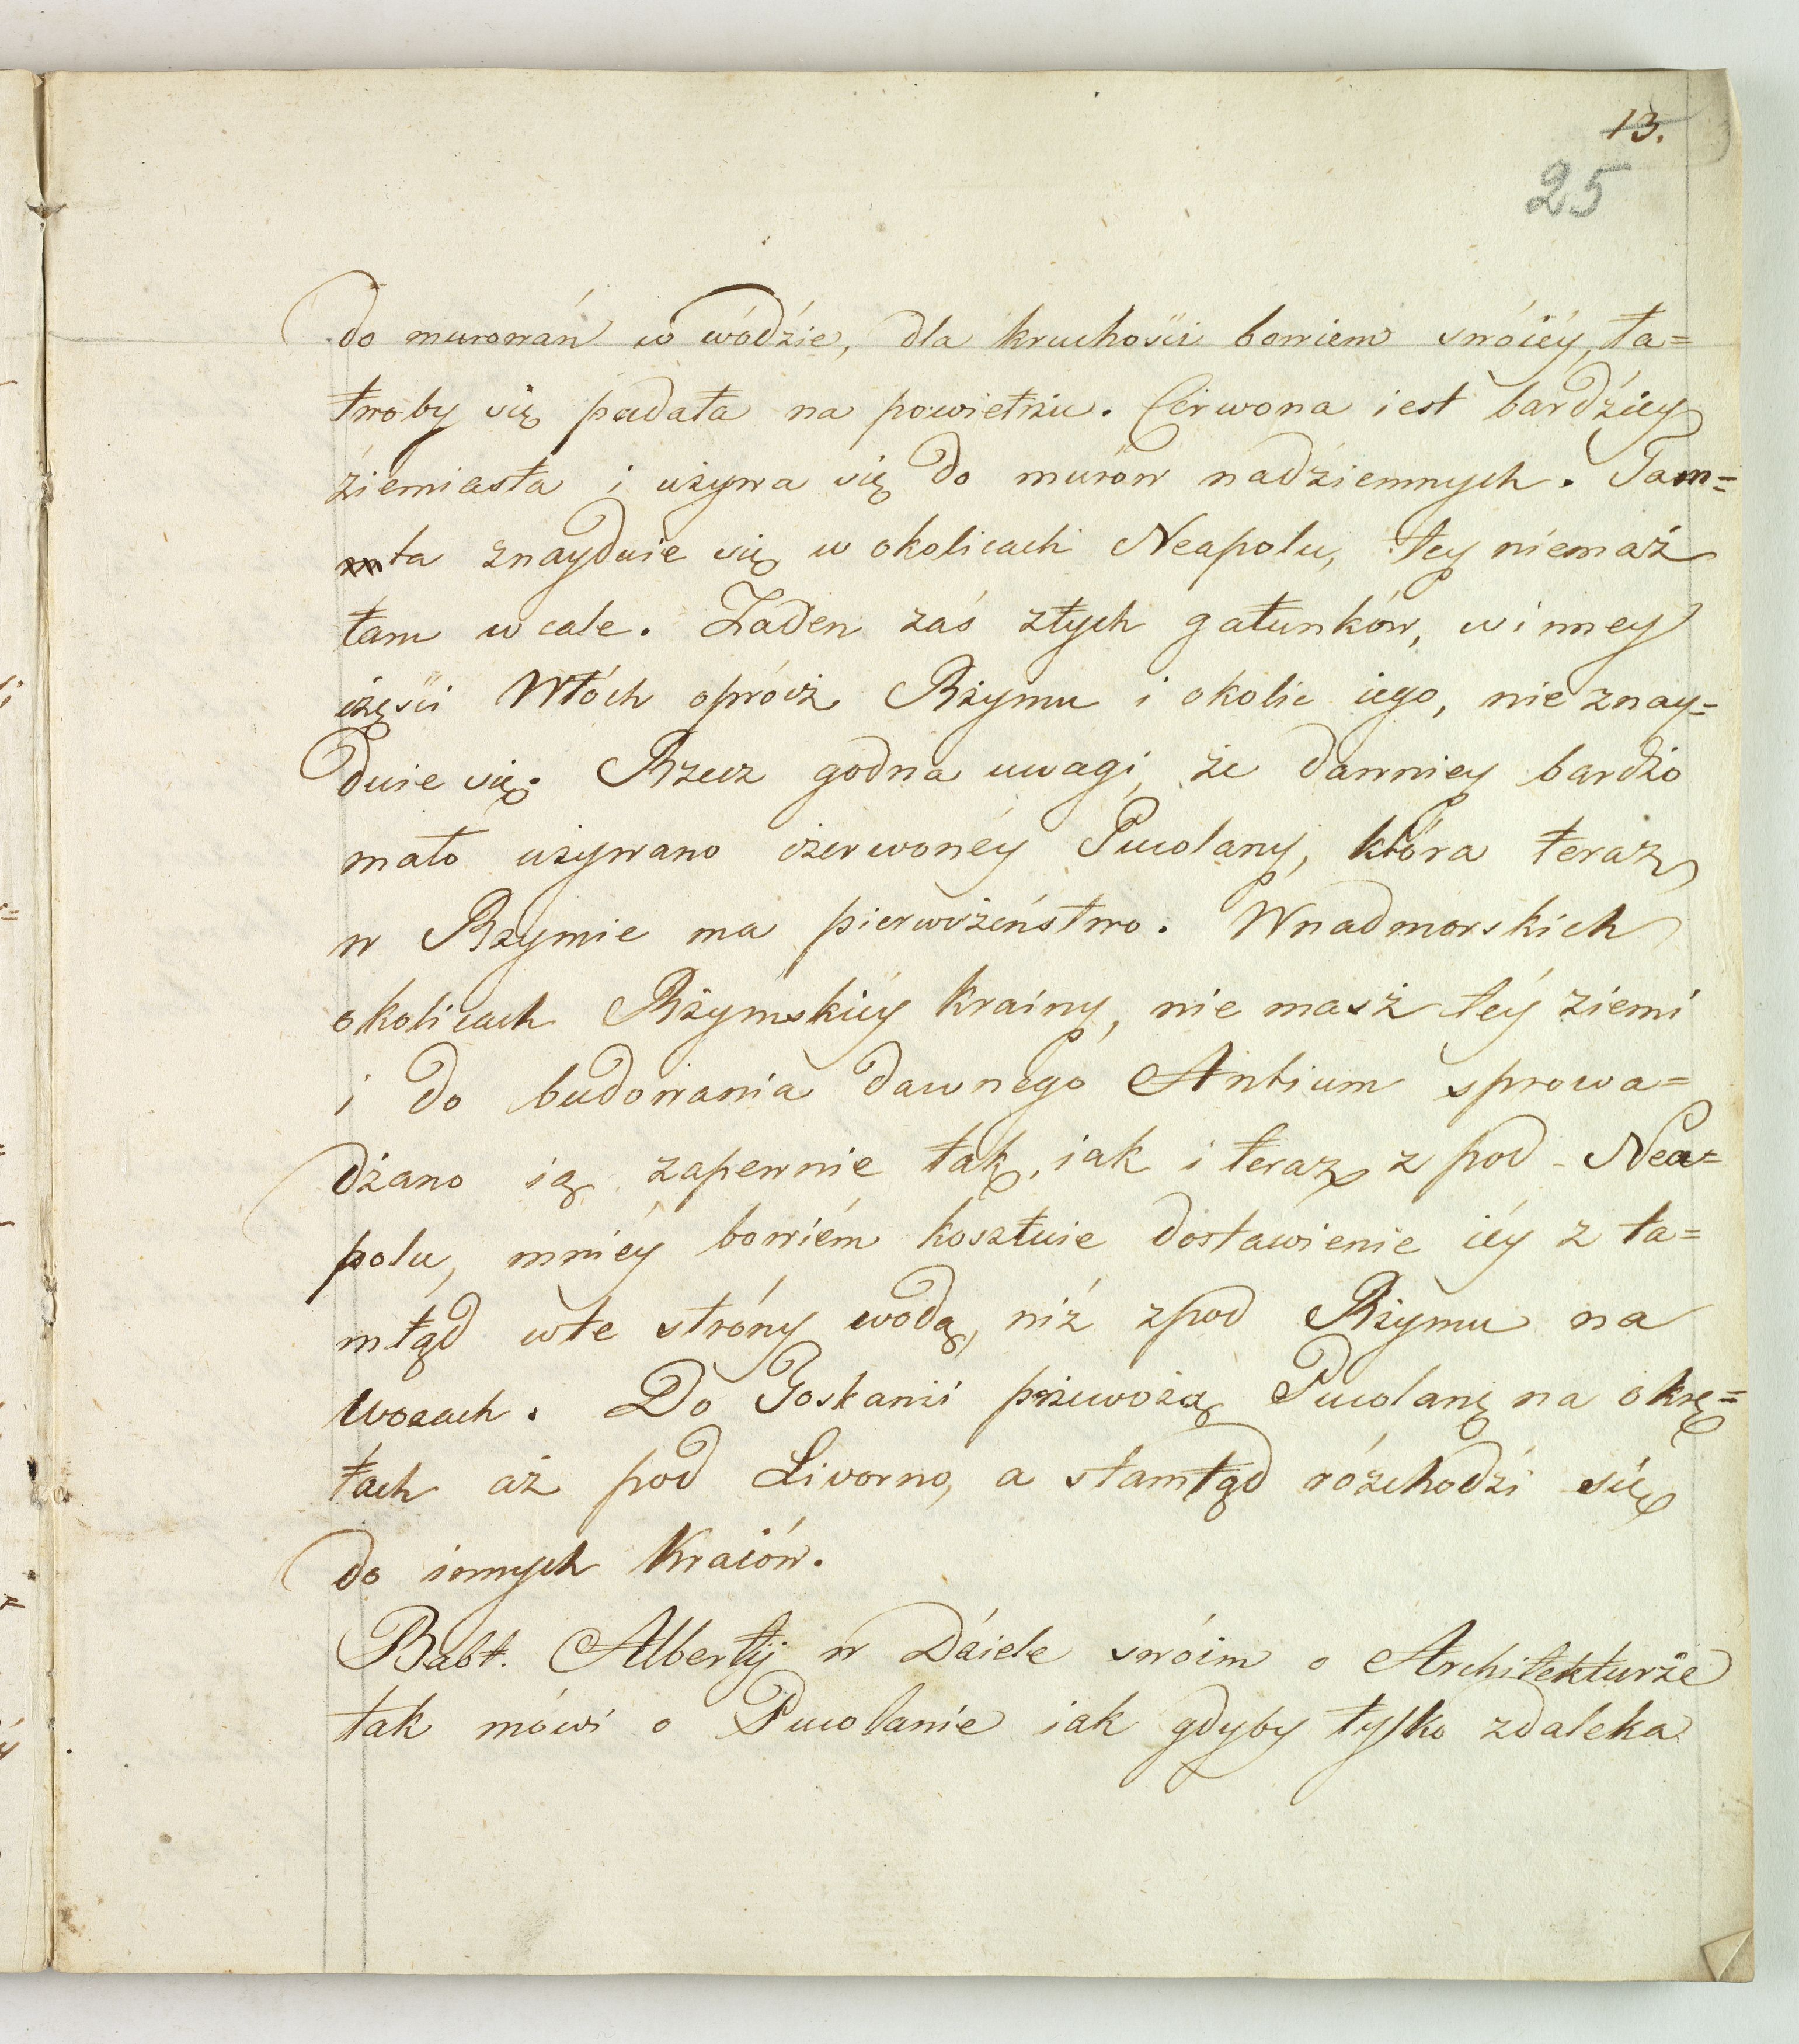 13.
25
do murowań w wódzie, dla kruchości bowiem swóiéy, ła=
twoby się padała na powietrzu. Czerwona iest bardźiey
źiemiasta i używa się do murów nadziemnych. Tam=
ta znayduie się w okolicach Neapolu, tey niemaż
tam wcale. Żaden zaś złych gatunków, w inney
częsci Włóch oprócz Rzymu i okolic iego, nie znay=
duie się. Rzecz godna uwagi, że dawniey bardzo
mało używano czerwonéy Pucolany, która teraz
w Rzymie ma pierwozeństwo. W nadmorskich
okolicach Rzymskiéy Krainy, nie masz téy ziemi
i do budowania dawnego Antium sprowa=
dzano ią zapewnie tak, iak i teraz z pod Nea=
polu, mniéy bowiém kosztuie dostawienie iéy z ta=
mtąd w te stróny wodą, niż z pod Rzymu na
wozach. Do Toskanii przewożą Pucolanę na okrę=
tach aż pod Livorno, a stamtąd rózchodzi się
do innych Kraiów.
Babt. Alberty w Dziele swóim o Architekturze
tak mówi o Pucolanie iak gdyby tylko zdaleka